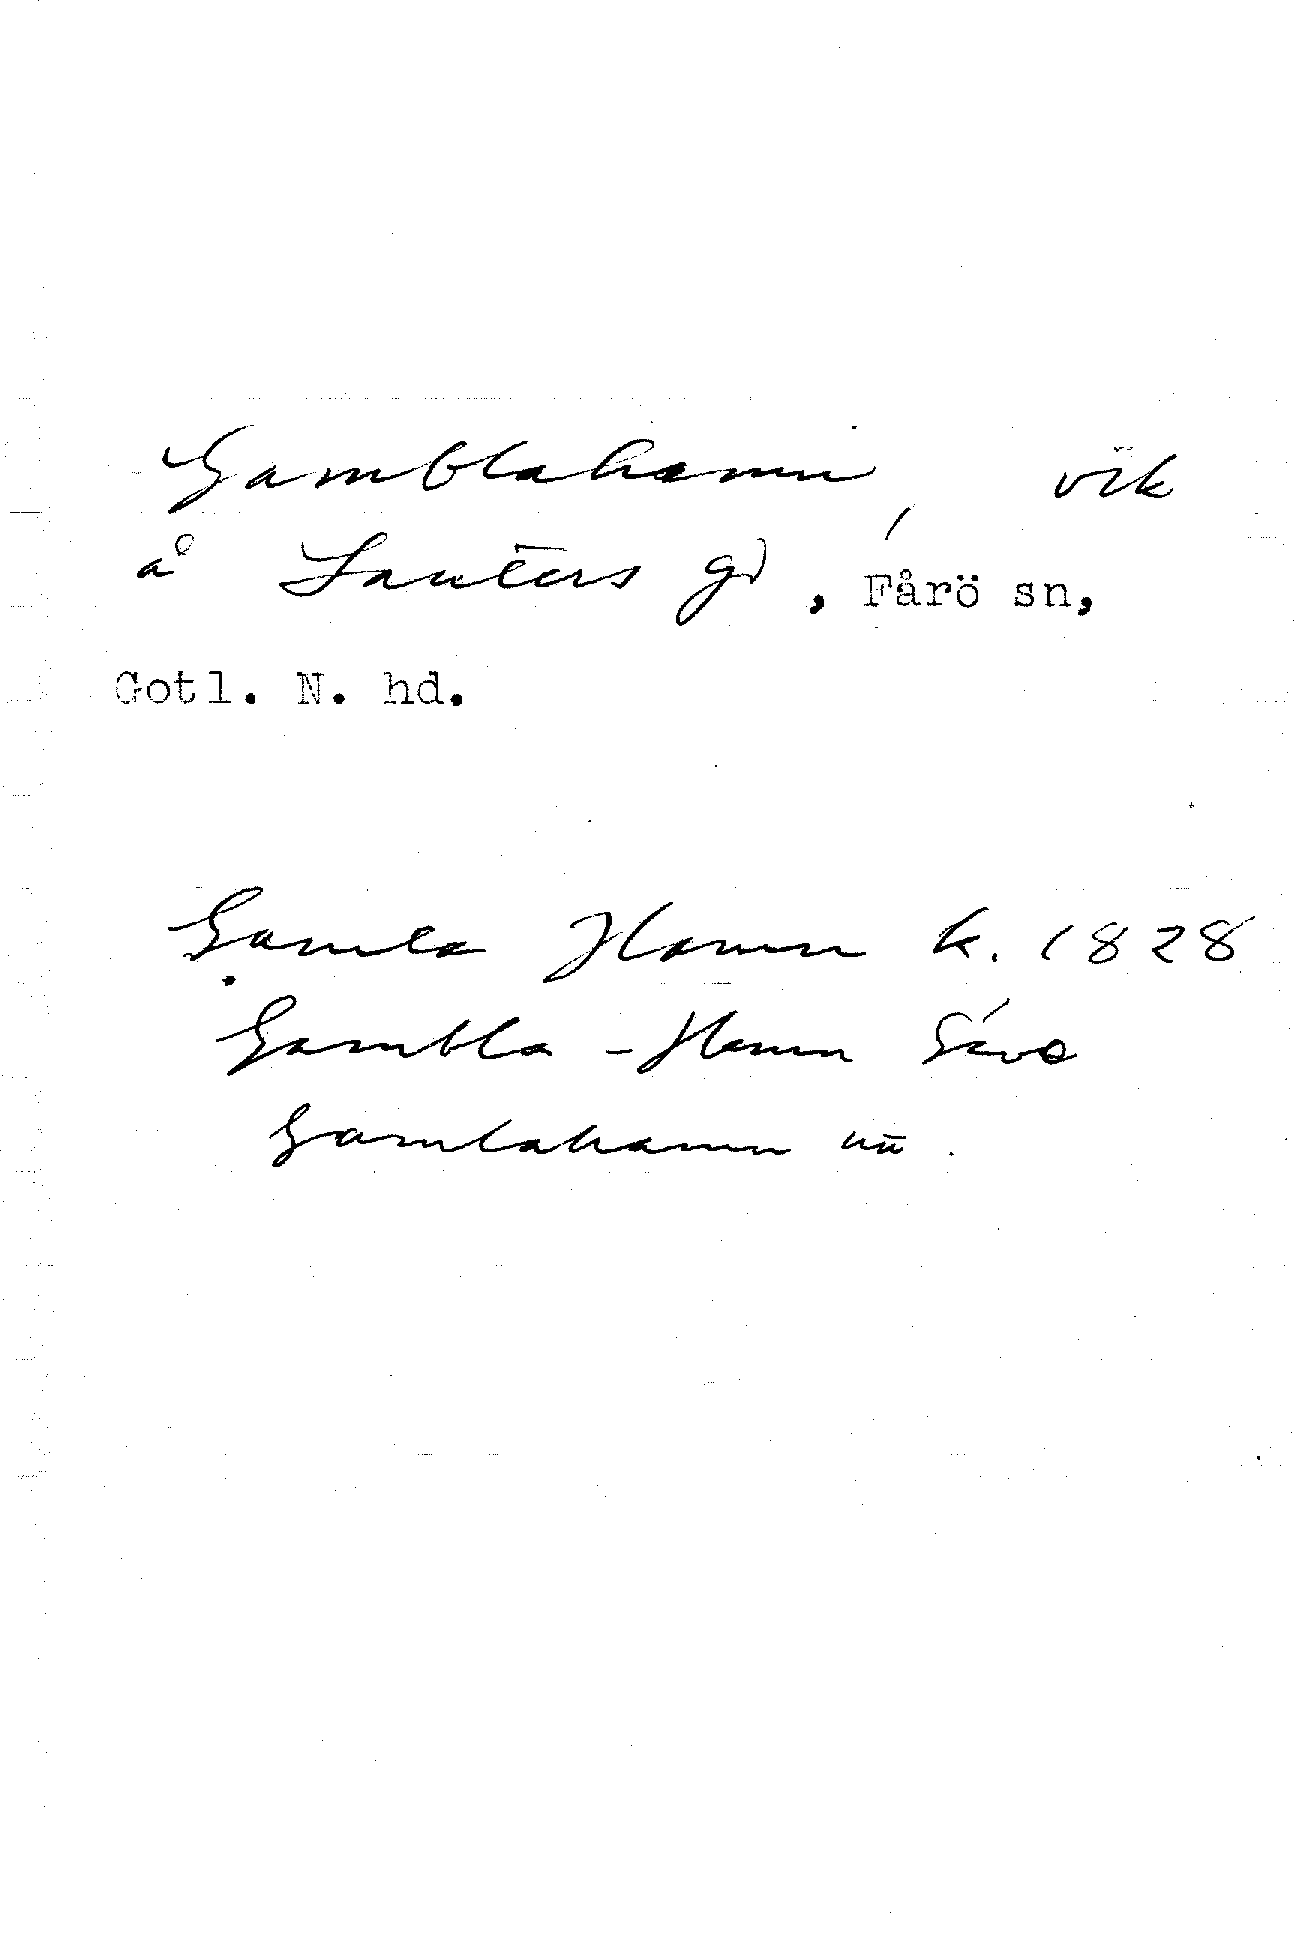 Gamblahamn, vik
å Lauters gd, Fårö sn,
Gotl. N. hd.
Gamla Hamn k. 1828
Gambla-Hamn Säve
Gamlahamn nu.